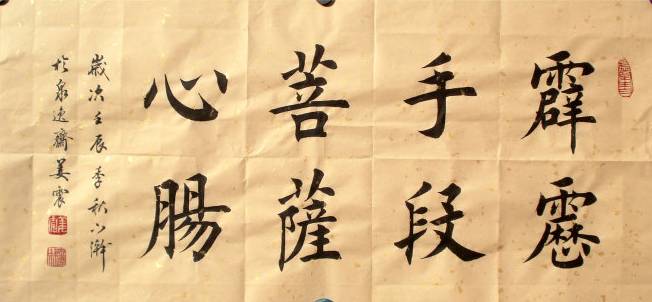 霹靂
手段
菩薩
心腸
歲次壬辰季秋以澣
於泉逸齋姜震